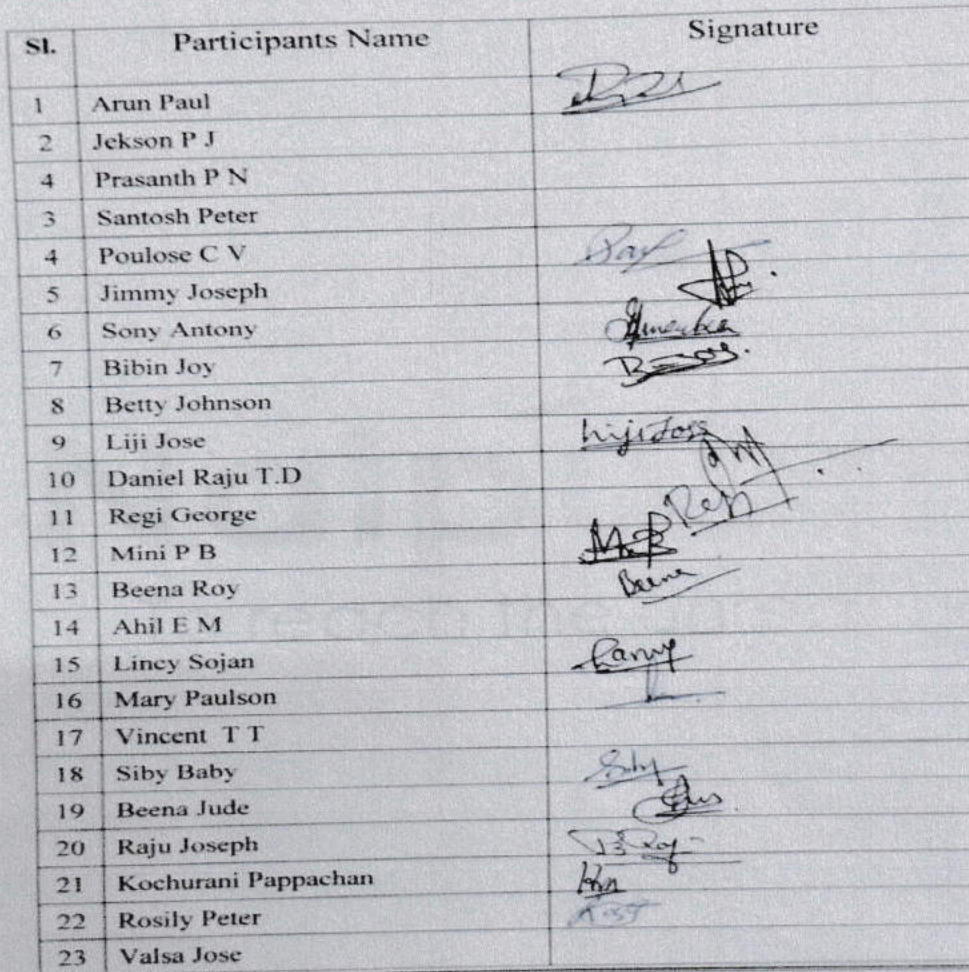 Sl. Participants Name Signature
1 Arun Paul
2 Jekson P J
4 Prasanth P N
3 Santosh Peter
4 Poulose C V
5 Jimmy Joseph
6 Sony Antony
7 Bibin Joy
8 Betty Johnson
9 Liji Jose Liji Jose
10 Daniel Raju T.D
11 Regi George
12 Mini P B
13 Beena Roy Beena
14 Ahil E M
15 Lincy Sojan
16 Mary Paulson
17 Vincent T T
18 Siby Baby Siby
19 Beena Jude
20 Raju Joseph
21 Kochurani Pappachan
22 Rosily Peter
23 Valsa Jose